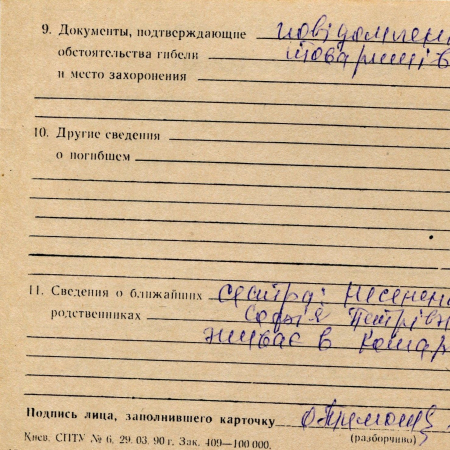 9. Документы, подтверждающие повідомлен
обстоятельства гибели товаришів
и место захоронения
10. Другие сведения
о погибшем
11. Сведения о ближайших сестра:
родственниках Софія Петрівн
живає в Комар
Подпись лица, заполнившего карточку
(разборчиво)
Киев. СПТУ № 6. 29. 03. 90 г. Зак. 409—100 000.